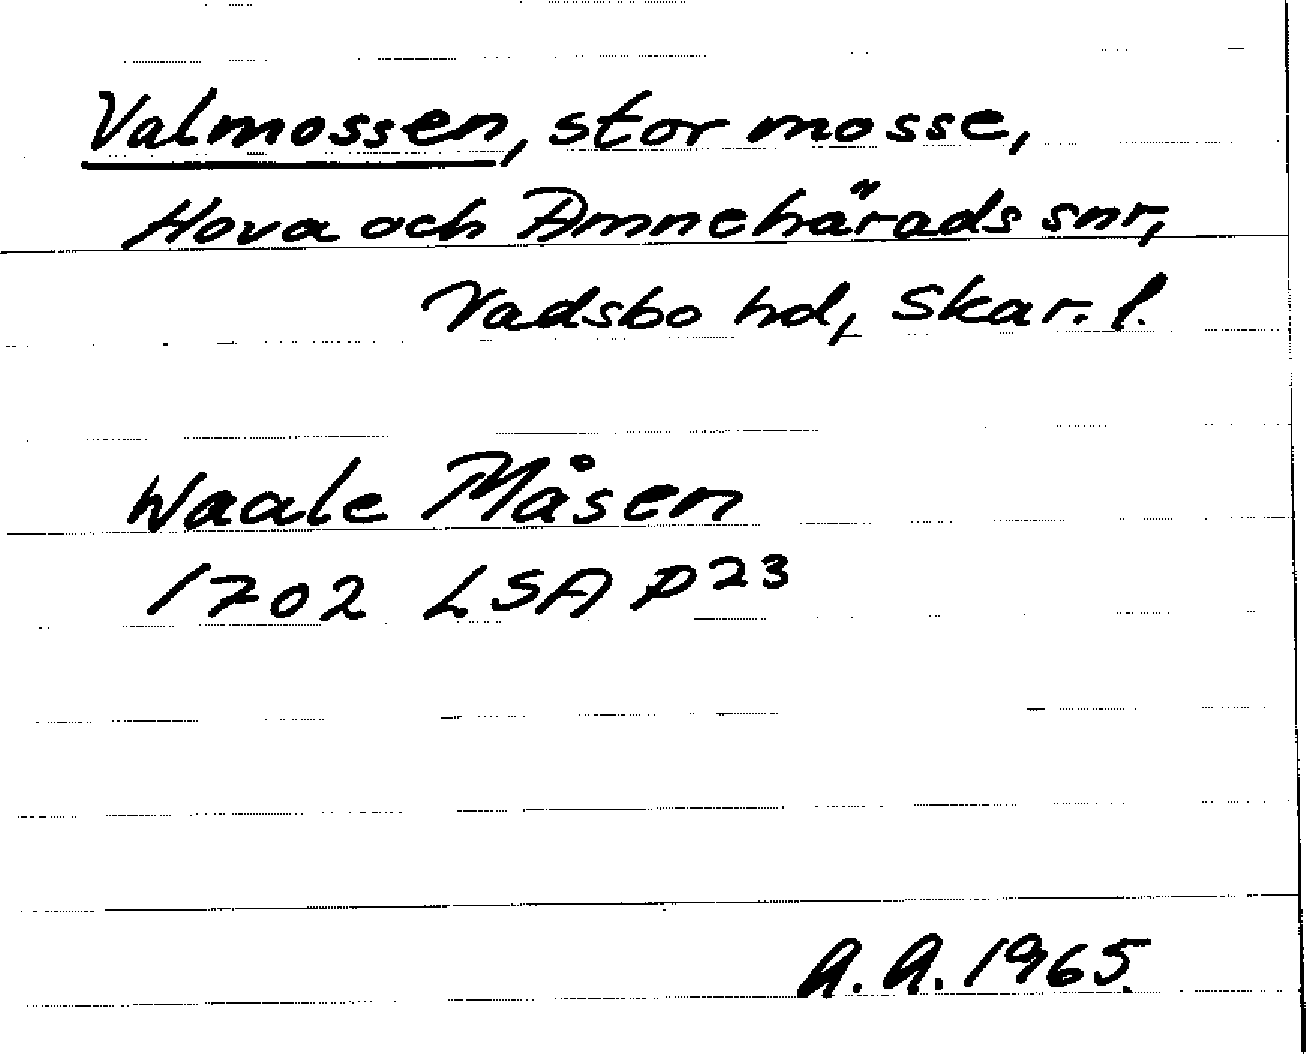 Valmossen, stor mosse,
Hova och Amnehärads snr,
Vadsbo hd, Skar. l.
Waale Måsen
1702 LSA P23
A. A. 1965.